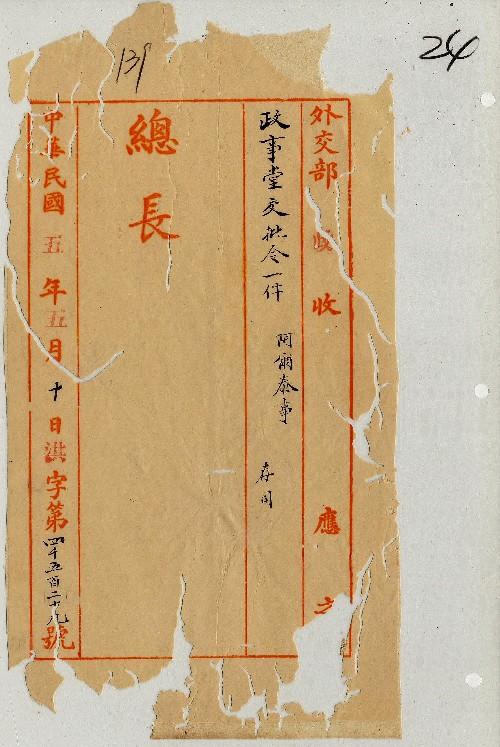 24
139
外交部 收 收 應
政事堂交批令一件 阿爾泰事 存司
總長
中華民國五年五月十日洪字第四千五百二十九號